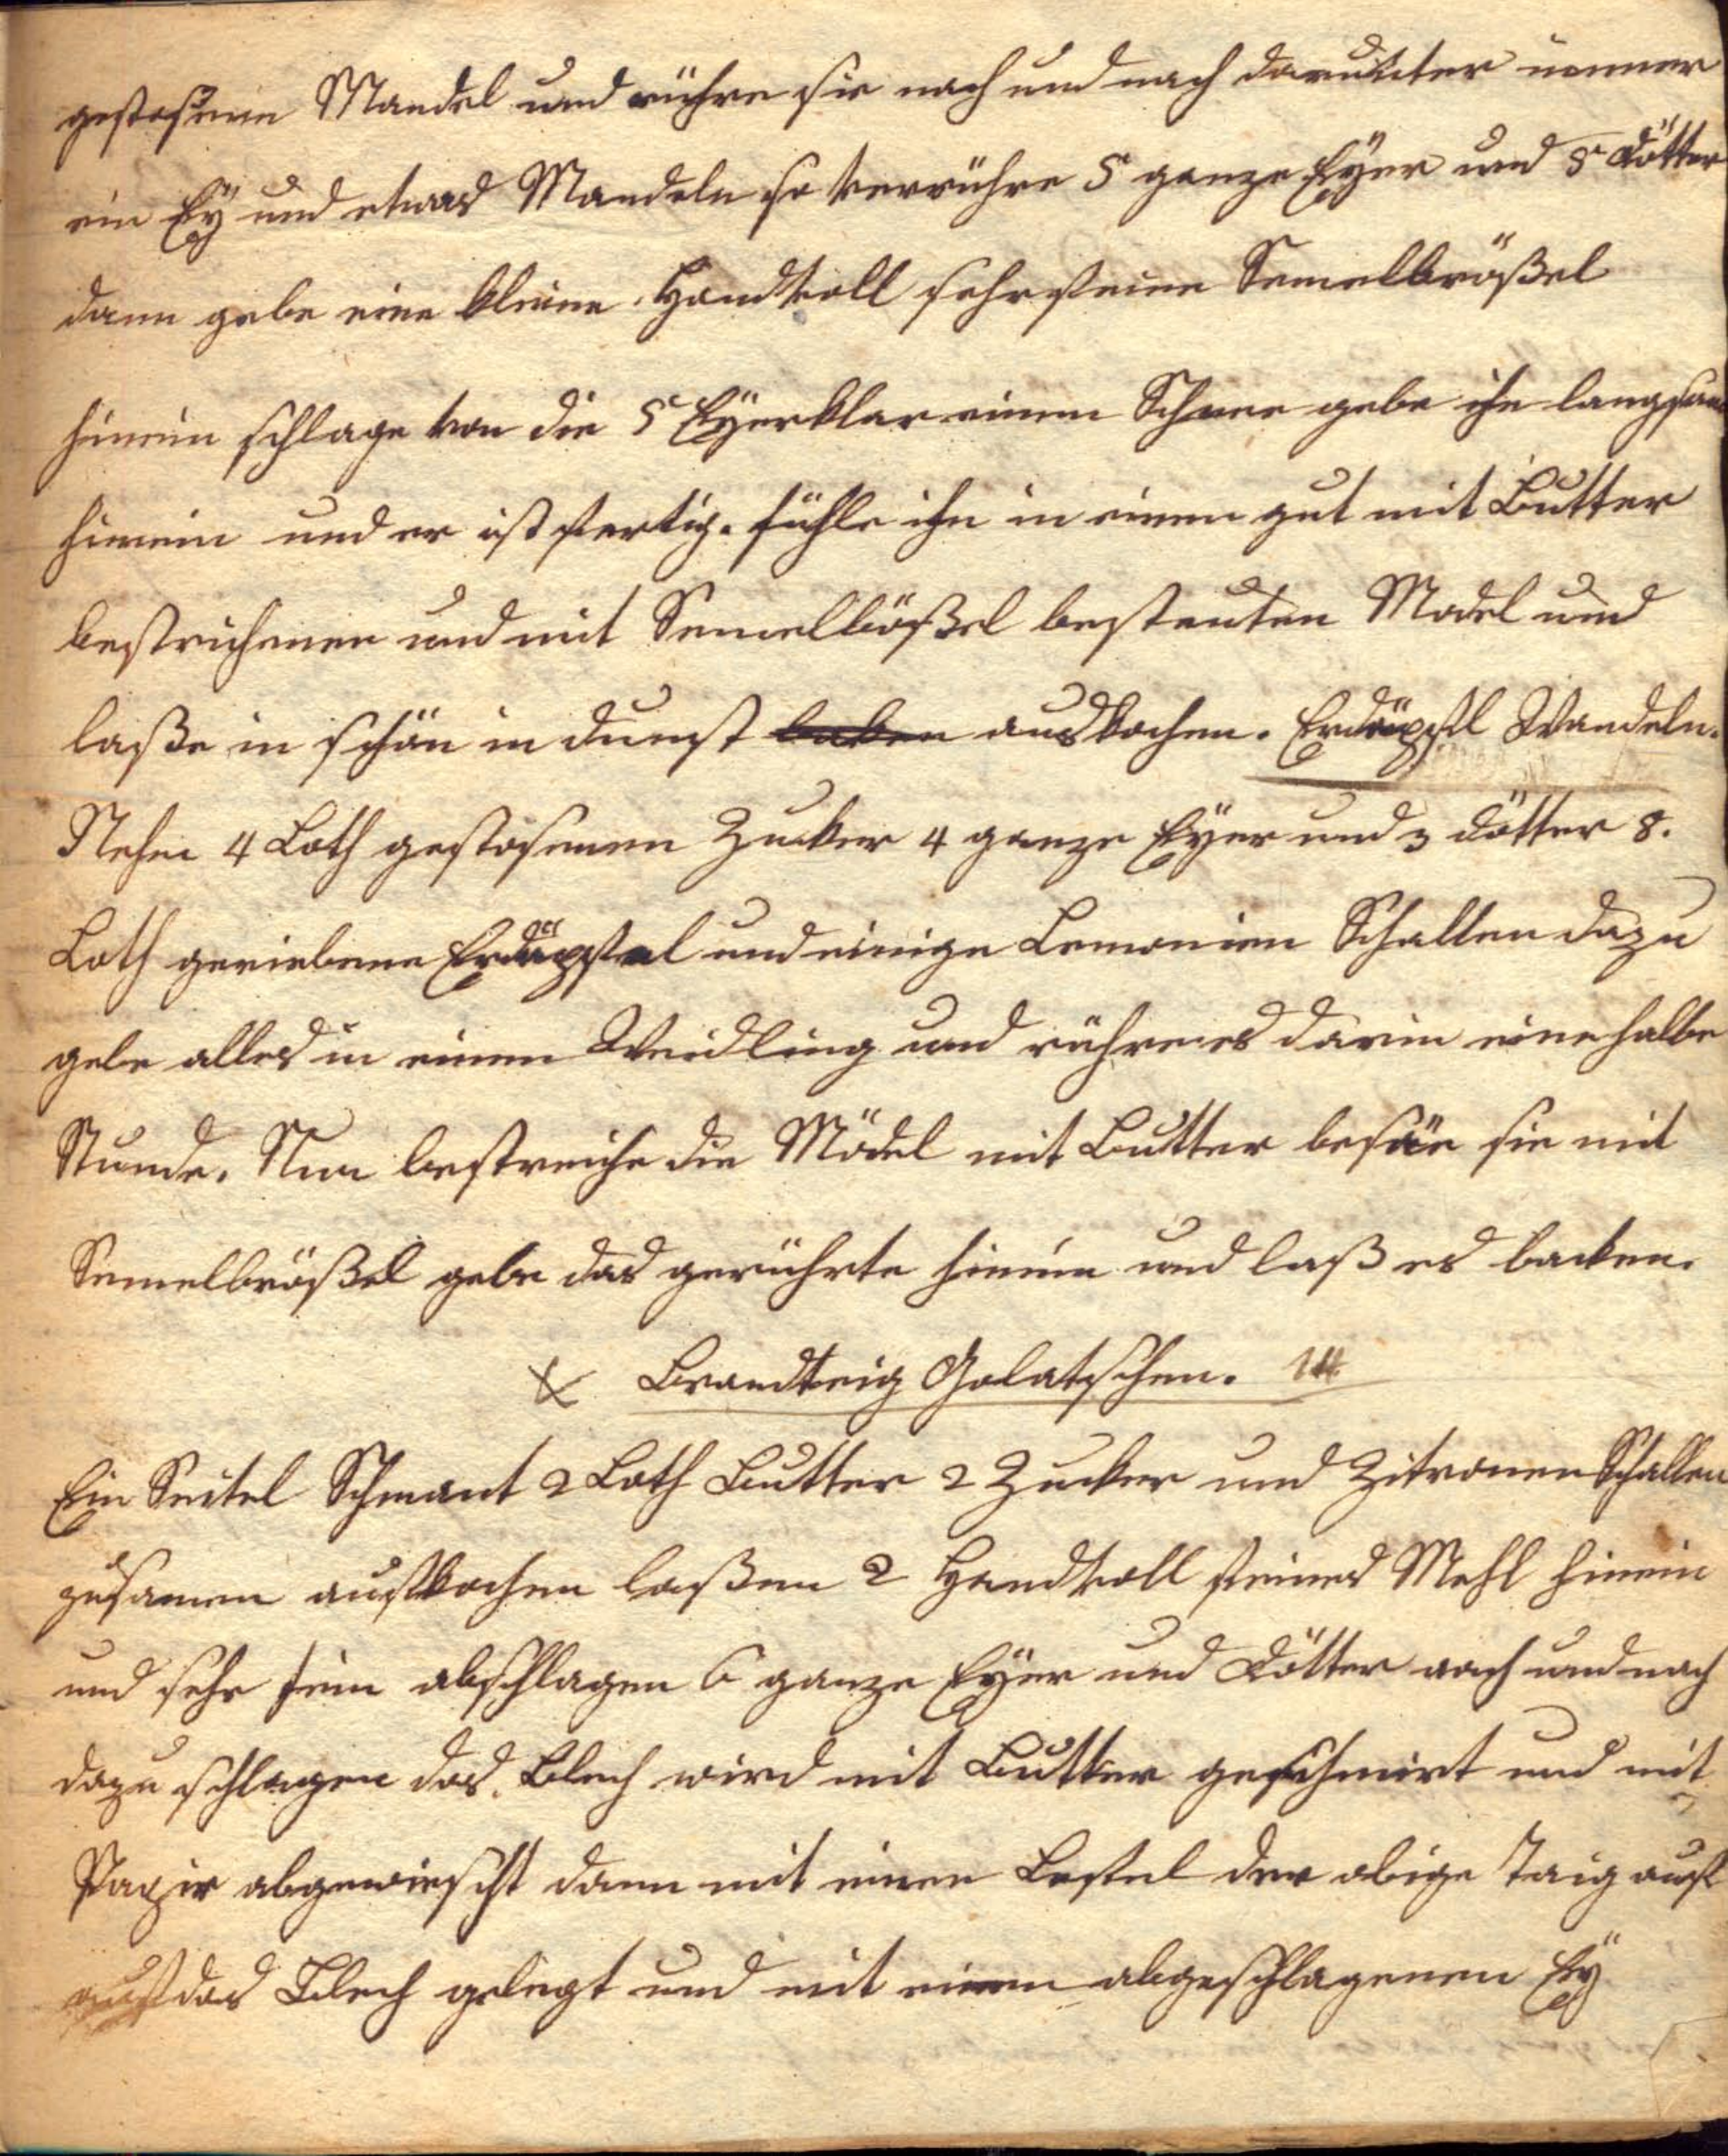 gestosenen Mandel und rühre sie nach und nach darunter immer
ein Eÿ und etwas Mandeln so verrühre 5 ganze Eÿer und 5 Dötter
dann gebe eine kleine Handvoll sehr feine Semelbrößel
hinein schlage von die 5 Eÿerklar einen Schnee gebe ihn langsam
hinein und er ist fertig. fühle ihn in einen gut mit Butter
bestrichenen und mit Semelbößel bestreuten Model und
laße in schön in dunst backen auskochen. Erdäpfel Wandeln.
Nehm 4 Loth gestosenen Zucker 4 ganze Eÿer und 3 dötter 8.
Loth geriebene Erdäpfel und einige Lemonien Schallen dazu
gebe alles in einen Weidling und rühre es darin eine halbe
Stunde. Nun bestreiche die Mödel mit Butter besäe sie mit
Semelbrößel gebe das gerührte hinein und laß es backen.
Brandteig Golatschen.
Ein Seitel Schmant 2 Loth Butter 2 Zucker und Zitronen Schallen
zusamen aufkochen laßen 2 Handvoll feines Mehl hinein
und sehr fein abschlagen 6 ganze Eÿer und Dötter nach und nach
dazu schlagen das Blech wird mit Butter geschmirt und mit
Papir abgewischt dann mit einen Lefel der obige Taig auf
auf das Blech gelegt und mit einen abgeschlagenen Eÿ